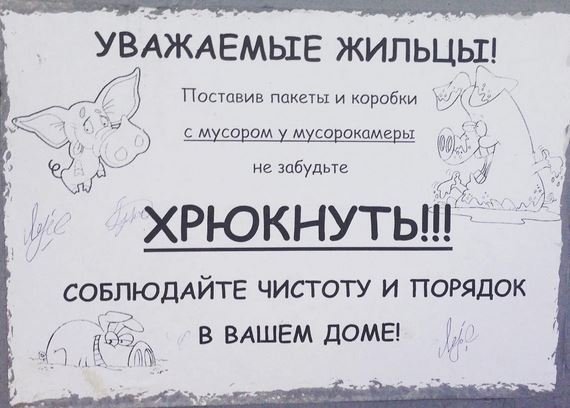 УВАЖАЕМЫЕ ЖИЛЬЦЫ!
Поставив пакеты и коробки
с мусором у мусорокамеры
не забудьте
ХРЮКНУТЬ!!!
СОБЛЮДАЙТЕ ЧИСТОТУ И ПОРЯДОК
В ВАШЕМ ДОМЕ!